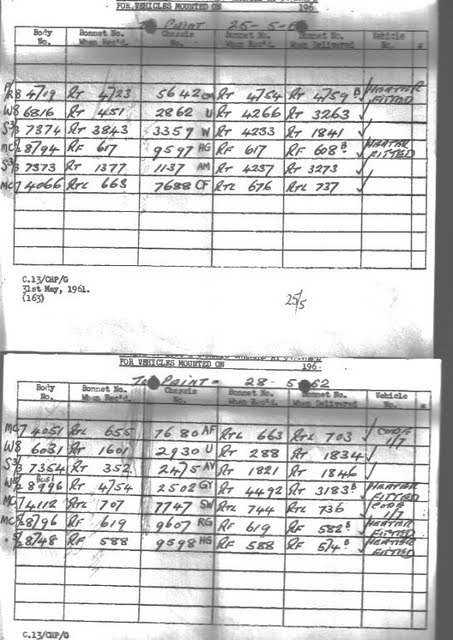 FOR VEHICLES MOUNTED ON 196
To PAINT 25-5-6
Body No. Bonnet No. When Rec'd. Chassis No. Bonnet No. Bonnet No. When Delivered Vehicle No.
R8 4/19 RT 4/23 5642 RT 4/54 RT 4/59 B ✓ HEATER FITTED
W8 6316 RT 451 2862 U RT 4266 RT 3263 ✓
S3/3 7374 RT 3843 3359 W RT 4233 RT 1841 ✓
8/94 RF 617 9597 HG RF 617 RF 608 B ✓ HEATER FITTED
S3/3 7373 RT 1377 1137 AM RT 4237 RT 3273 ✓
MC7 4066 RTL 663 7688 CF RTL 676 RTL 737 ✓
C.13/CHP/G
31st May, 1961.
(163)
25/5
FOR VEHICLES MOUNTED ON 196
To PAINT = 28-5 62
Body No. Bonnet No. When Rec'd. Chassis No. Bonnet No. Bonnet No. When Delivered Vehicle No.
MC7 4051 RTL 655 7680 AF RTL 663 RTL 703 ✓ CODE 1/7
W8 6031 RT 1601 2930 U RT 288 RT 1834 ✓
S3/3 7354 RT 352 24/5 AV RT 1821 RT 1846 ✓
8796 RT 4/54 2502 GY RT 4492 RT 3183 B ✓ HEATER FITTED
MC7 4112 RTL 707 7747 SW RTL 744 RTL 736 ✓ CODE 1/7
8/96 RF 619 9607 RG RF 619 RF 582 B ✓ HEATER FITTED
8/48 RF 588 9598 HG RF 588 RF 5/4 B ✓ HEATER FITTED
C.13/CHP/G